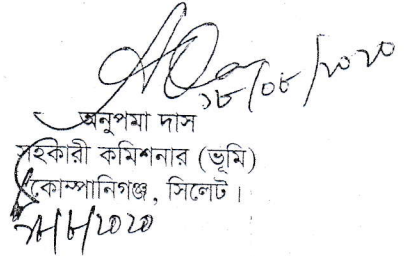 ১৮/০৮/২০২০
অনুপমা দাস
সহকারী কমিশনার (ভূমি)
কোম্পানিগঞ্জ, সিলেট।